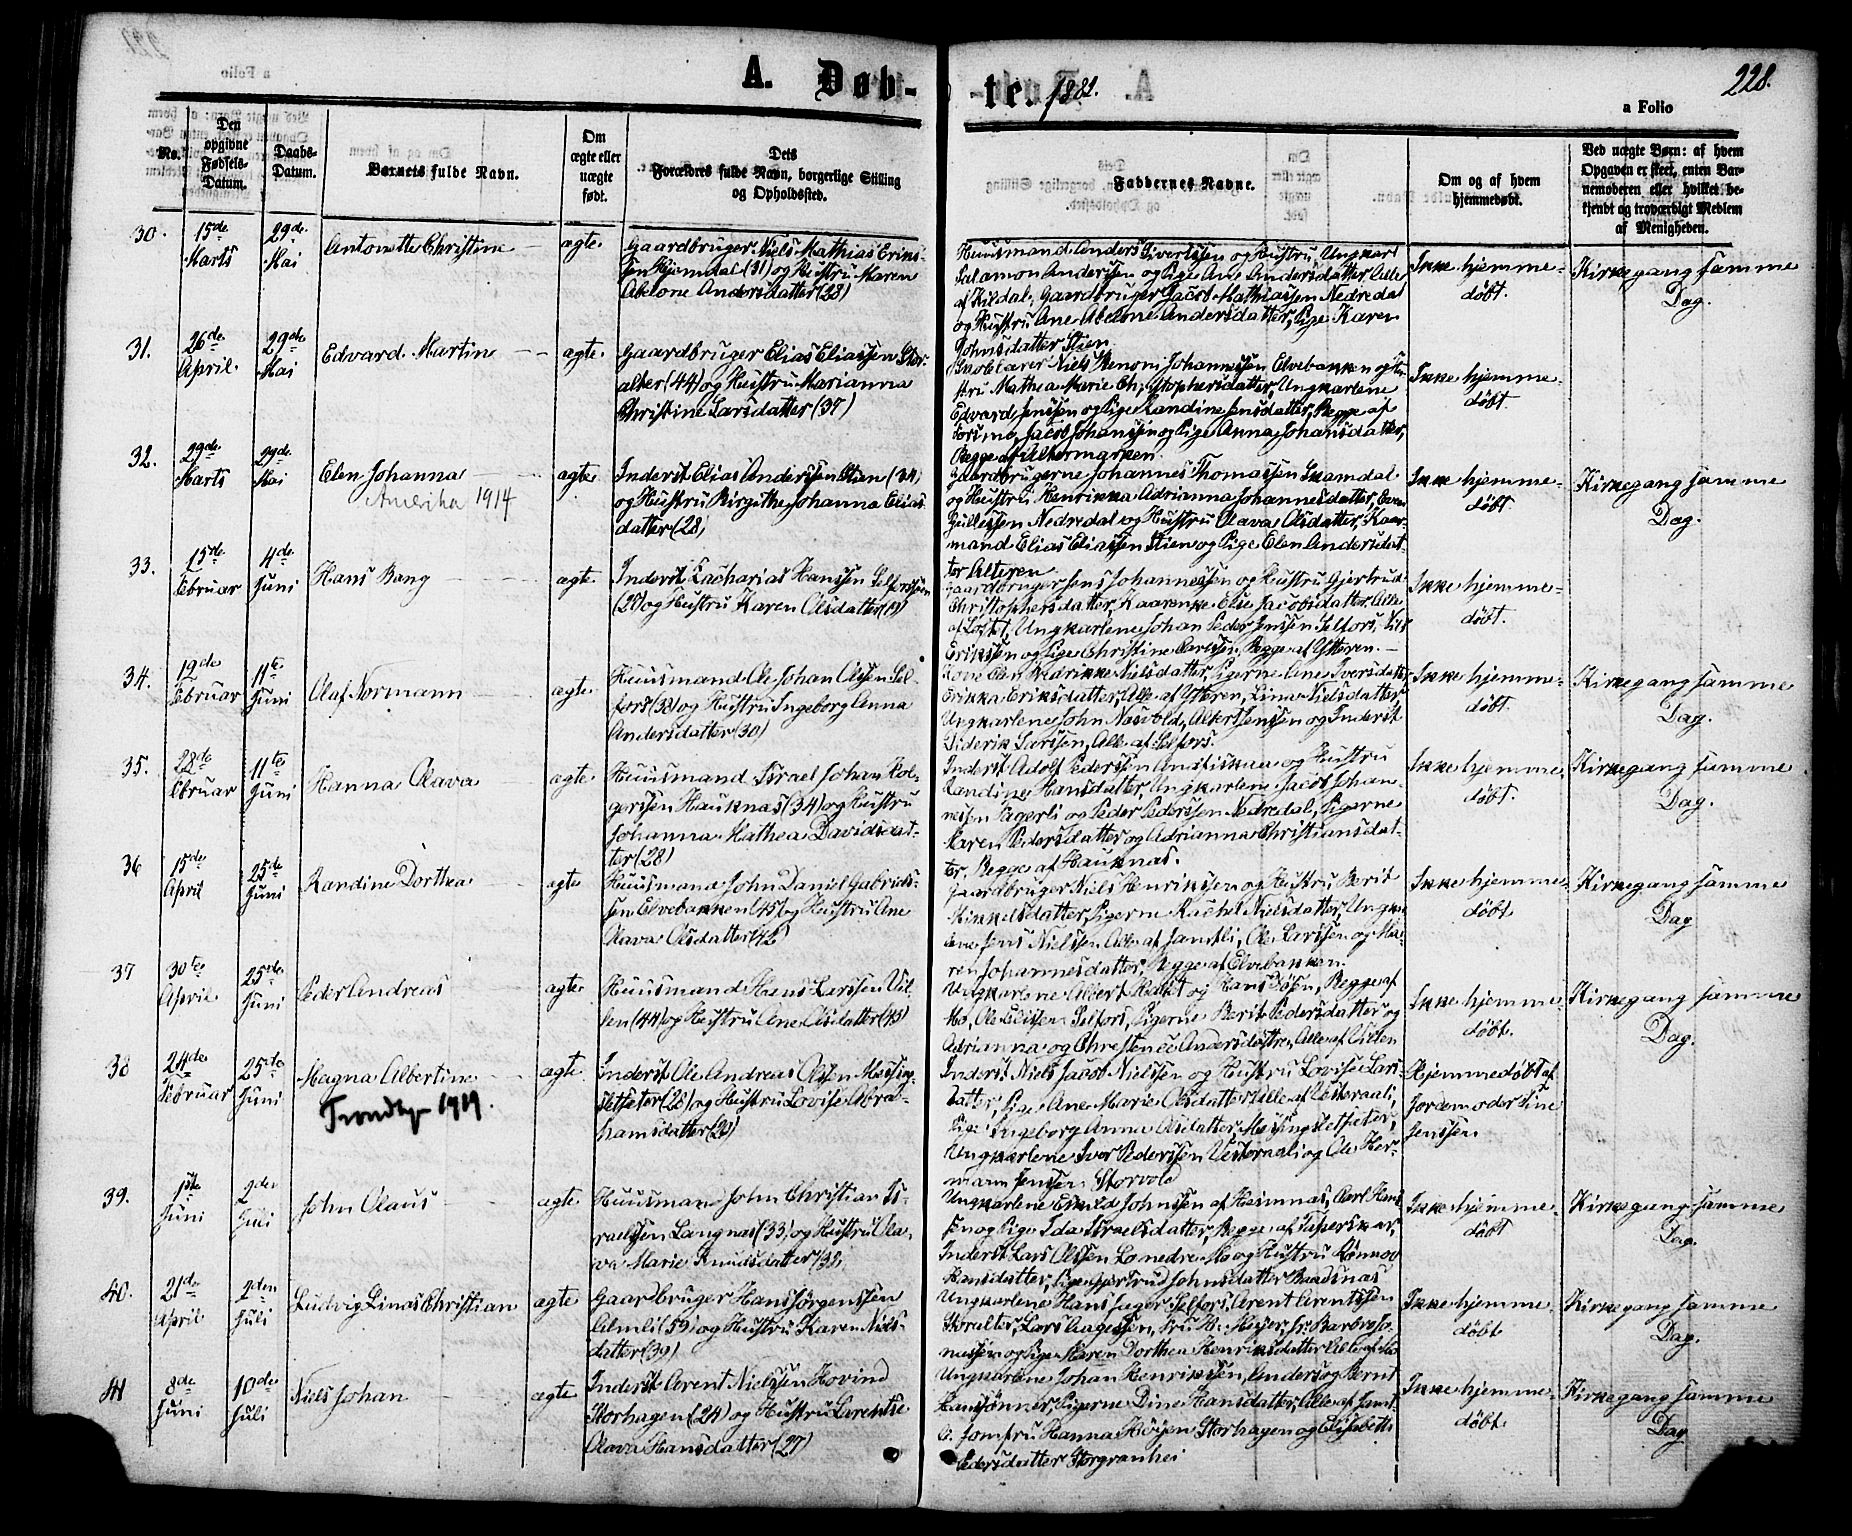 A. Døb-
te. 1882.
228.
a Folio
No.
Den opgivne Fødsels-Datum.
Daabs-Datum.
Barnets fulde Navn.
Om ægte eller uægte født.
Dets Forældres fulde Navn, borgerlige Stilling og Opholdssted.
Faddernes Navne.
Om og af hvem hjemmedøbt.
Ved uægte Børn: af hvem Opgaven er skeet, enten Bar-nemoderen eller hvilket be-kjendt og troværdigt Medlem af Menigheden.
30.
15de Marts
29de Mai
Antonette Christine
ægte
Gaardbruger Niels Mathias Eriks-
sen Hjemdal (31) og Hustru Maren
Abelone Andersdatter (28)
Huusmand Anders Sivertssen og Hustru, Ungkarl
Salamon Anderssen og Pige Ane Andersdatter, Alle
af Kildal, Gaardbruger Jacob Mathiassen Nedredal
og Hustru Ane Abelone Andersdatter, Pige Karen
Johnsdatter Stien
Ikke hjemme-
døbt.
Kirkegang samme
Dag.
31.
26de April.
29de Mai
Edvard Martin
ægte
Gaardbruger Elias Eliassen Stor-
alter (44) og Hustru Marianna
Christine Larsdatter (37)
Skolelærer Niels Johannessen Elvebakken og Hu-
stru Mathea Marie Christophersdatter, Ungkarlene
Edvard Jenssen og Pige Randine Jensdatter, Begge af
Forsmo, Jacob Johanssen og Pige Anna Johansdatter,
Begge af Altermarken.
Ikke hjemme-
døbt.
32.
29de Marts
29de Mai
Elen Johanna
Amerika 1914
ægte
Inderst Elias Anderssen Stien (34)
og Hustru Birgithe Johanna Elias-
datter (28)
Gaardbrugerne Johannes Thomassen Skamdal
og Hustru Henrikka Adrianna Johannesdatter, Even
Nedredal og Hustru Olava Olsdatter, Kaar-
mand Elias Eliassen Stien og Pige Elen Andersdat-
ter Alteren
Ikke hjemme-
døbt.
Kirkegang samme
Dag.
33.
15de Februar
4de Juni
Hans Bang
ægte
Inderst Zacharias Hanssen Selforslien
(29) og Hustru Karen Olsdatter (19)
Gaardbruger Jens Johannessen og Hustru Gjertrud
Christophersdatter, Kaarenke Else Jacobsdatter, Alle
af , Ungkarlene Johan Peder Jenssen Selfors, Nils
Erikssen og Pige Christine Carlsen, Begge af Ytteren.
Ikke hjemme-
døbt.
34.
19de Februar
11te Juni
Olaf Normann
ægte
Huusmand Ole Johan Olssen Sel-
fors (38) og Hustru Ingeborg Anna
Andersdatter (30)
Kone Elen Marikke Nielsdatter, Pigerne Ane Iversdatter,
Erikka Eriksdatter, Alle af Ytteren, Lina Nielsdatter
Ungkarlene John Nasvold, Albert Jenssen og Inderst
Diderik Larssen, Alle af Selfors.
Ikke hjemme-
døbt.
Kirkegang samme
Dag.
35.
28de Februar
11te Juni
Hanna Olava
ægte
Huusmand Israel Johan Hol-
gerssen Hauknas (34) og Hustru
Johanna Mathea Davidsdat-
ter (28)
Inderst Adolf Pederssen og Hustru
Randine Hansdatter, Ungkarlene Jacob Johan-
nessen Fagerli og Peder Pederssen Nedredal, Pigerne
Karen Pedersdatter og Adrianna Christiansdat-
ter, Begge af Hauknas.
Ikke hjemme-
døbt.
Kirkegang samme
Dag.
36
15de April
25de Juni
Randine Dorthea
ægte
Huusmand John Daniel Gabriels-
sen Elvebakken (45) og Hustru Ane
Olava Olsdatter (42)
Gaardbruger Niels Henrikssen og Hustru Berit
Mikkelsdatter, Pigerne Rachel Nielsdatter, Ungkar-
lene Jens Nielssen Alle af Jamtli, Ole Larssen og Ma-
ren Johannesdatter, Begge af Elvebakken.
Ikke hjemme-
døbt
Kirkegang samme
Dag
37
30te April
25de Juni
Peder Andreas
ægte
Huusmand Hans Larssen Vil-
len (44) og Hustru Ane Olsdatter (45)
Ungkarlene Albert og Hans , Begge af
Mo, Ole Selfors, Pigerne Berit Pedersdatter og
Adrianna og Christence Andersdøttre, Alle af Villen
Ikke hjemme-
døbt.
Kirkegang samme
Dag.
38
24de Februar
25de Juni
Magna Albertine
Trondhj 1919.
ægte
Inderst Ole Andreas Olssen Messing-
sletteter (28) og Hustru Lovise Abra-
hamsdatter (29)
Inderst Niels Jacob Nielssen og Hustru Lovise Lars-
datter, Pige Ane Marie Olsdatter Alle af Vesteraali,
Pige Ingeborg Anna Olsdatter, Messingsletteter,
Ungkarlene Iver Pederssen Vesteraali og Ole Her-
mann Jenssen Storvold
Hjemmedøbt af
Jordemoder Sine
Jenssen.
39.
1ste Juni
2den Juli
John Olaus
ægte
Huusmand John Christian Is-
raelssen Langnas (33) og Hustru Ola-
va Marie Knudsdatter (32)
Ungkarlene Johnssen af Heimnas, Carl Hans-
sen og Pige Ida Israelsdatter, Begge af ,
Inderst Lars Olssen Mo og Hustru Rønnov
Hansdatter, Pige Gjertrud Johnsdatter Baadsnas
Ikke hjemme-
døbt
Kirkegang samme
Dag.
40.
21de April
2den Juli
Ludvig Linas Christian
ægte
Gaardbruger Hans Jørgenssen
Almli (59) og Hustru Karen Niels-
datter (39)
Ungkarlene Hans Jager Selfors, Arent Arentssen
, Lars Aagessen, Meyer,
nessen og Pige Maren Dorthea Henriksdatter Alle af Mo
Ikke hjemme-
døbt
Kirkegang samme
Dag.
41
8de Juni
10de Juli
Niels Johan
ægte
Inderst Arent Nielssen Hovind
Storhagen (24) og Hustru Larentse
Olava Hansdatter (27)
Ungkarlene Johan Henrikssen, Anders og Bernt
Hanssønner, Pigerne Dine Hansdatter, Alle af Jamt-
li. Jomfru Hanna Høyen Storhagen og Elisabeth
Pedersdatter Storgranhei
Ikke hjemme-
døbt
Kirkegang samme
Dag